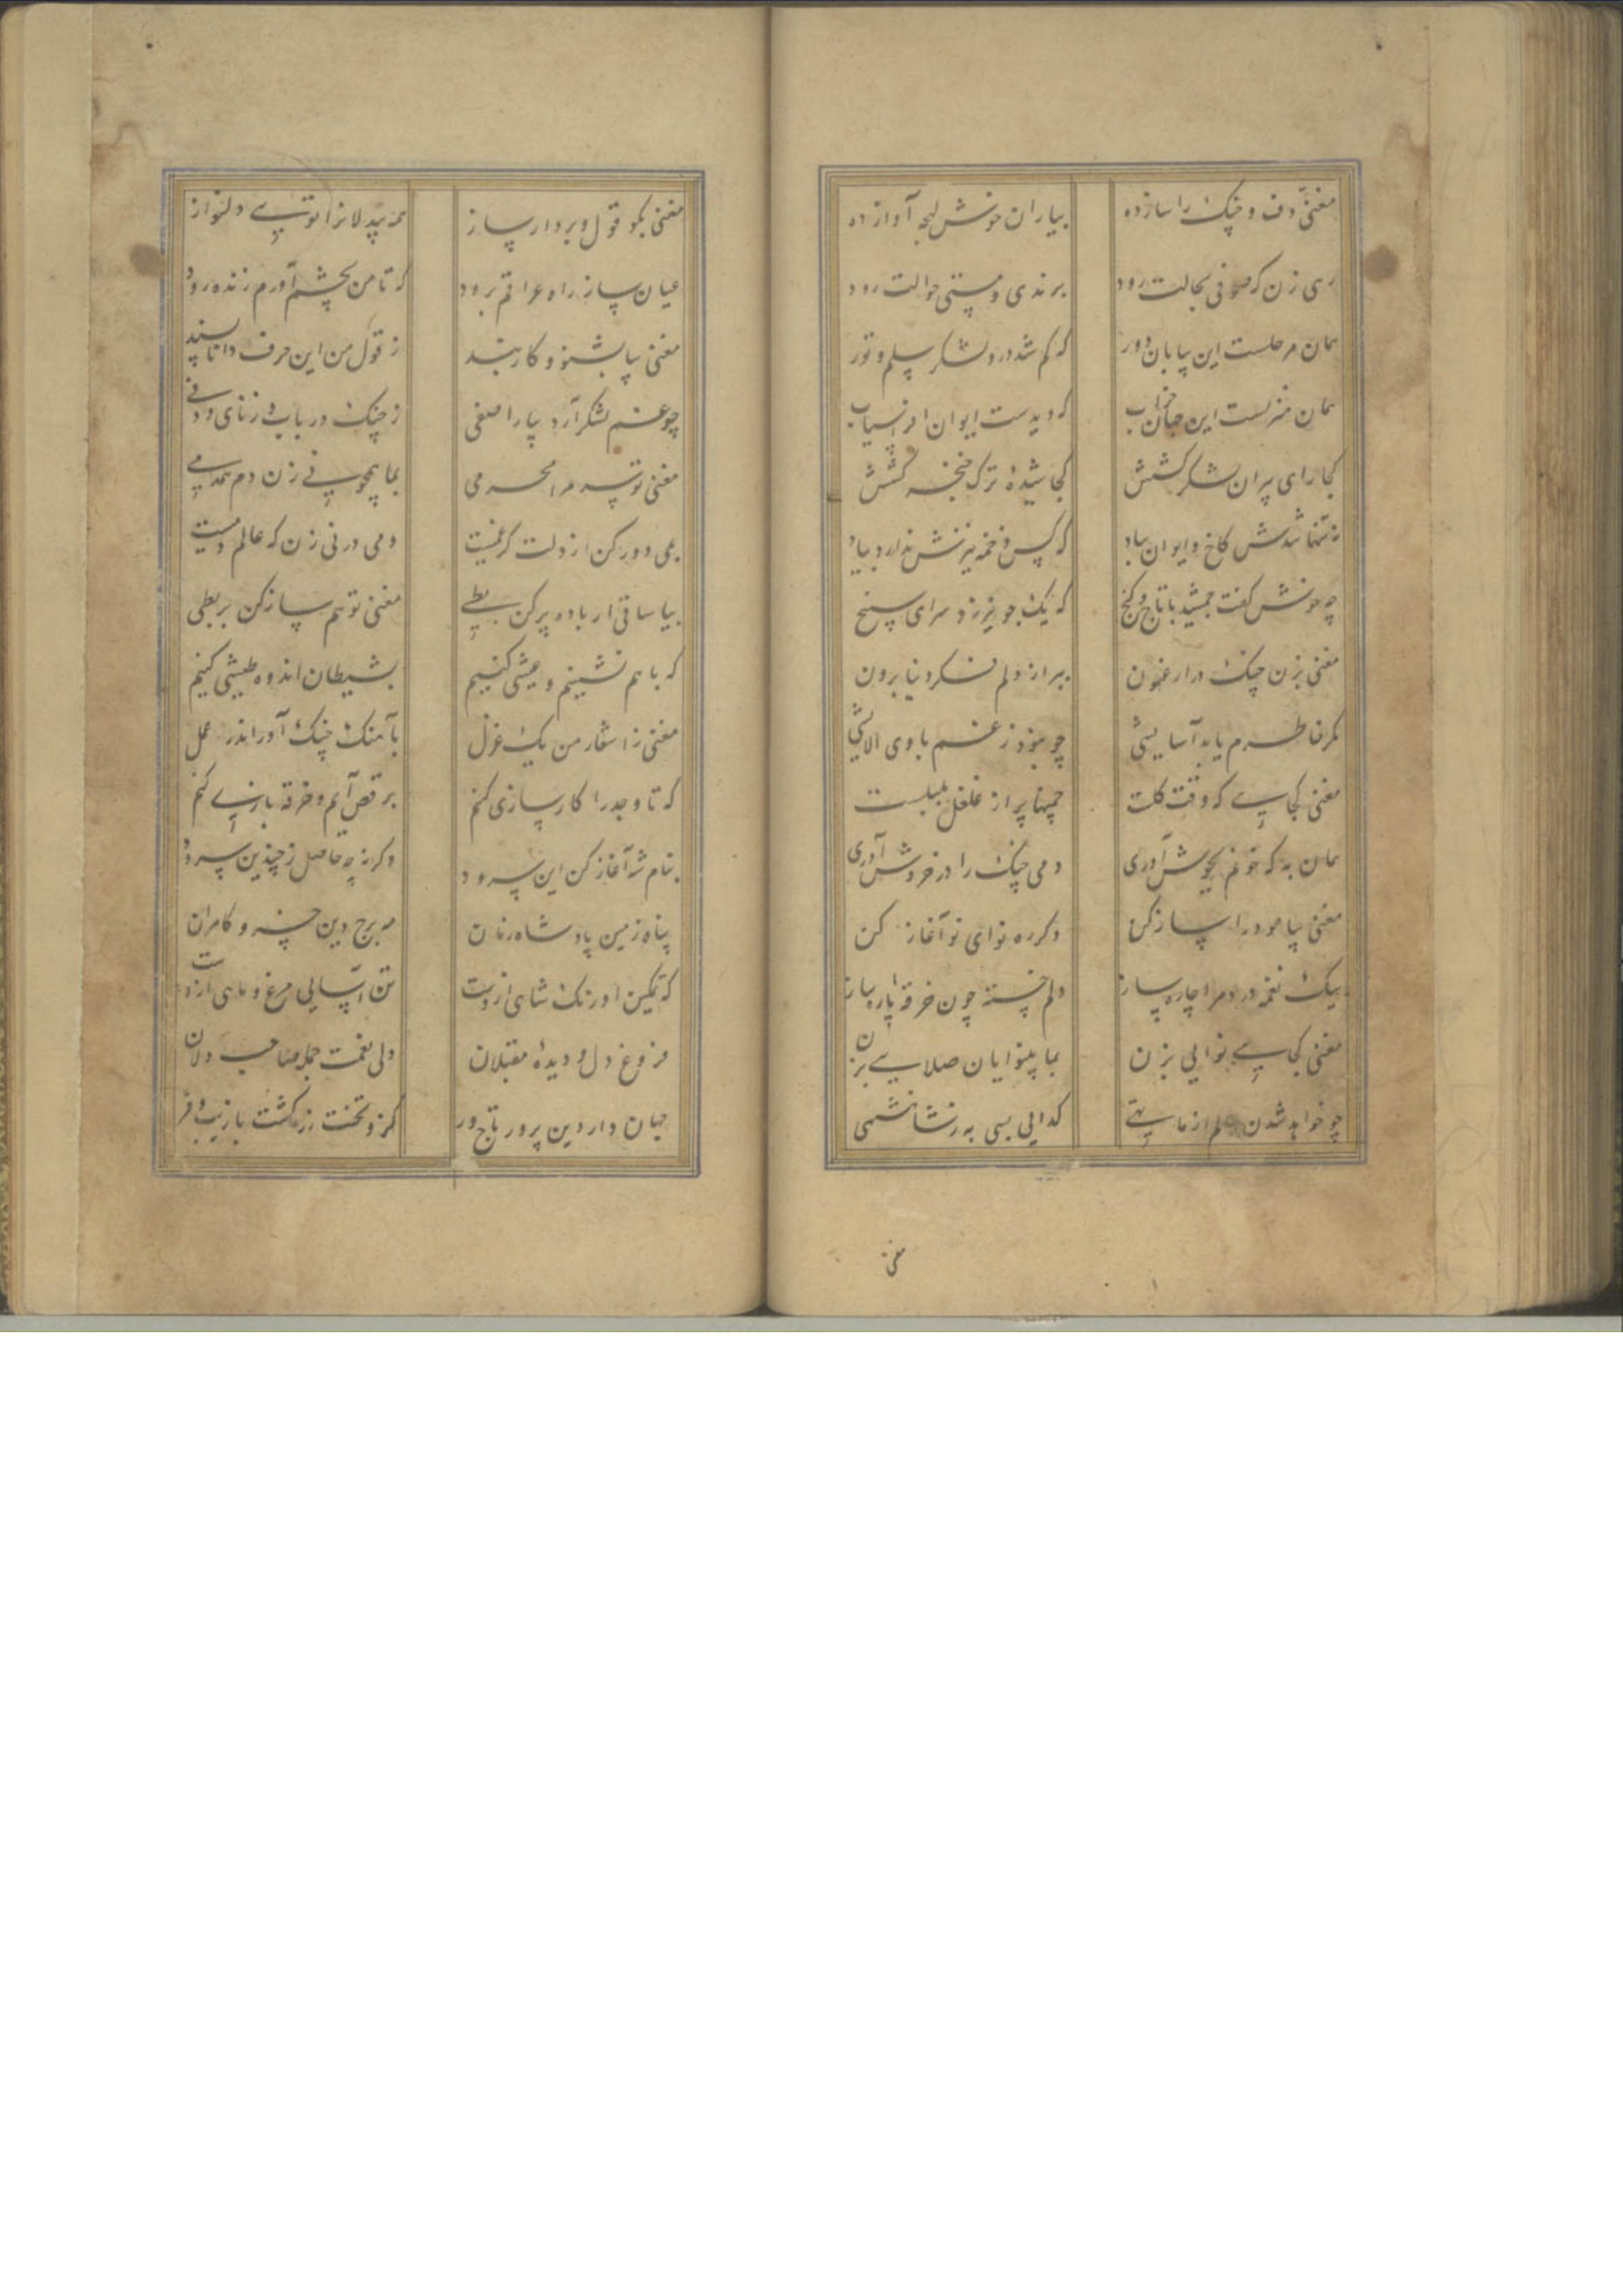 مغنی دف و چنک را ساز ده بیاران خوش لهجه آواز ده
رهی زن که صوفی بحالت رود برندی و مستی حوالت رود
همان مرحلست این بیابان دور که کم شد درو لشکر سلم و تور
همان منزلست این جهان خراب که دیدست ایوان افراسیاب
کجا رای پیران لشکر کشش کجا شیدهٔ ترک خنجر کشش
نه تنها شدش کاخ و ایوان بباد که کس دخمه نیزش ندارد بیاد
چه خوش گفت جمشید با تاج و کنج که یک جو نیرزد سرای سپنج
مغنی بزن چنک در ارغنون ببر از دلم فکر دنیا برون
مکر خاطرم یابد آسایشی چو نبود ز غم با وی الایشی
مغنی کجایی که وقت کلست چمنها پر از غلغل بلبلست
همان به که خونم بجوش آوری دمی چنک را در خروش آوری
مغنی بیا عود را ساز کن دکر ره نوای نو آغاز کن
بیک نغمه درد مرا چاره ساز دلم خسته چون خرقه پاره ساز
مغنی کجایی نوایی بزن بما بینوایان صلایی بزن
چو خواهد شدن عالم از ما تهی کدایی بسی به ز شاهنشهی
مغنی
مغنی بکو قول و بردار ساز همه بیدلانرا تویی دلنواز
عیان ساز راه عراقم برود که تا من بچشم آورم زنده رود
مغنی بیا بشنو و کار بند ز قول من این حرف دانا پسند
چو غم لشکر آرد بیارا صفی ز چنک و رباب و ز نای و دفی
مغنی تو سر مرا محرمی بما همچو نی زن دم همدمی
بمی دور کن از دلت کر غمیست دمی در نی زن که عالم دمیست
بیا ساقی از باده پر کن بطی مغنی تو هم ساز کن بربطی
که با هم نشینیم و عیشی کنیم بشیطان اندوه طیشی کنیم
مغنی ز اشعار من یک غزل بآهنک چنک آور اندر عمل
که تا وجد را کارسازی کنم برقص آیم و خرقه بازی کنم
بنام شه آغاز کن این سرود دکرنه چه حاصل ز چندین سرود
پناه زمین پادشاه زمان مه برج دین خسرو کامران
که تمکین اورنک شاهی ازوست تن آسایی مرغ و ماهی ازوست
فروغ دل و دیدهٔ مقبلان ولی نعمت جمله صاحب دلان
جهان دار دین پرور تاج ور کزو تخت زر کشت با زیب و فر